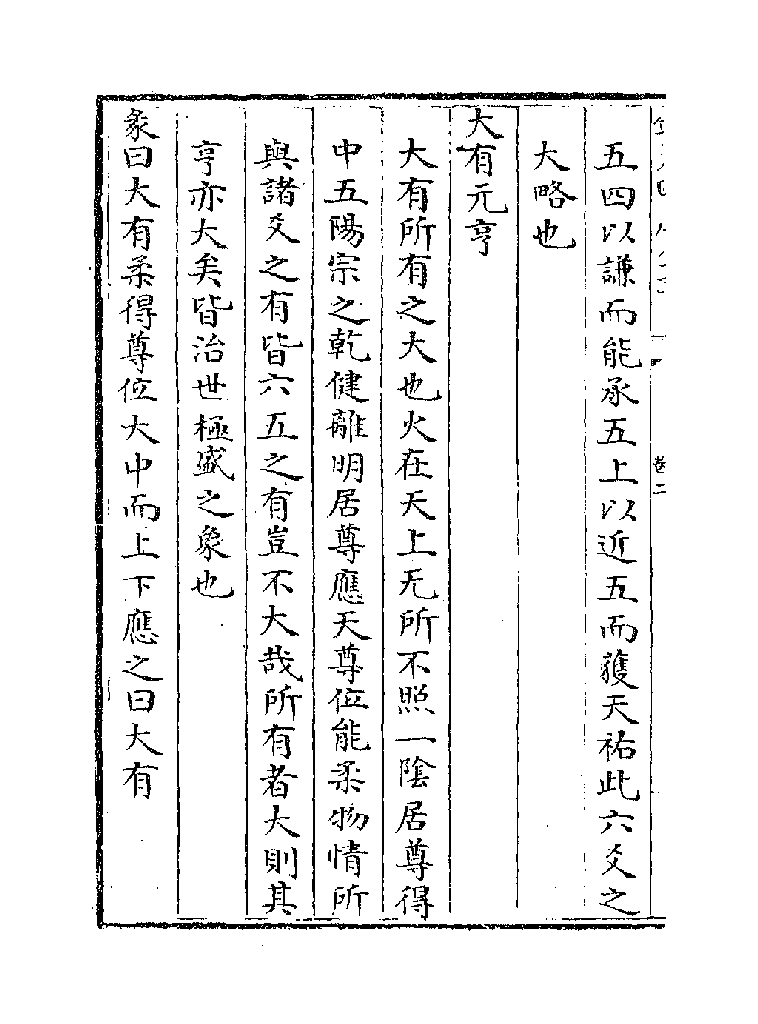 五四以謙而能承五上以近五而獲天祐此六爻之
大略也
大有元亨
大有所有之大也火在天上无所不照一陰居尊得
中五陽宗之乾健離明居尊應天尊位能柔物情所
與諸爻之有皆六五之有豈不大哉所有者大則其
亨亦大矣皆治世極盛之象也
彖曰大有柔得尊位大中而上下應之曰大有
卷二